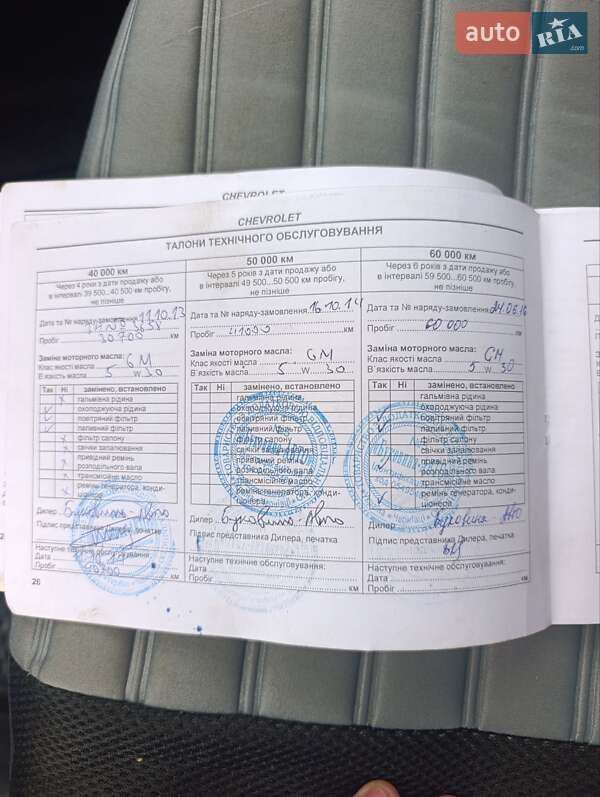 auto RIA .com
CHEVROLET
CHEVROLET
ТАЛОНИ ТЕХНІЧНОГО ОБСЛУГОВУВАННЯ
40 000 км
Через 4 роки з дати продажу або
в інтервалі 39 500...40 500 км пробігу,
не пізніше
Дата та № наряду-замовлення 11.10.13
Пробіг 30 700 км
Заміна моторного масла:
Клас якості масла GM
В'язкість масла 5 W 30
Так Ні замінено, встановлено
гальмівна рідина
охолоджуюча рідина
повітряний фільтр
паливний фільтр
фільтр салону
свічки запалювання
привідний ремінь
розподільного вала
трансмісійне масло
ремінь генератора, конди-
ціонера
Дилер Буковина-Авто
Підпис представника Дилера, печатка
Наступне технічне обслуговування
Дата
Пробіг км
26
50 000 км
Через 5 років з дати продажу або
в інтервалі 49 500...50 500 км пробігу,
не пізніше
Дата та № наряду-замовлення 16.10.14
Пробіг км
Заміна моторного масла:
Клас якості масла GM
В'язкість масла 5 W 30
Так Ні замінено, встановлено
гальмівна рідина
охолоджуюча рідина
повітряний фільтр
паливний фільтр
фільтр салону
свічки запалювання
привідний ремінь
розподільного вала
трансмісійне масло
ремінь генератора, конди-
ціонера
Дилер Буковина-Авто
Підпис представника Дилера, печатка
Наступне технічне обслуговування:
Дата
Пробіг км
60 000 км
Через 6 років з дати продажу або
в інтервалі 59 500...60 500 км пробігу,
не пізніше
Дата та № наряду-замовлення
Пробіг 60 000 км
Заміна моторного масла:
Клас якості масла GM
В'язкість масла 5 W 30
Так Ні замінено, встановлено
гальмівна рідина
охолоджуюча рідина
повітряний фільтр
паливний фільтр
фільтр салону
свічки запалювання
привідний ремінь
розподільного вала
трансмісійне масло
ремінь генератора, конди-
ціонера
Дилер Буковина-Авто
Підпис представника Дилера, печатка
Наступне технічне обслуговування:
Дата
Пробіг км